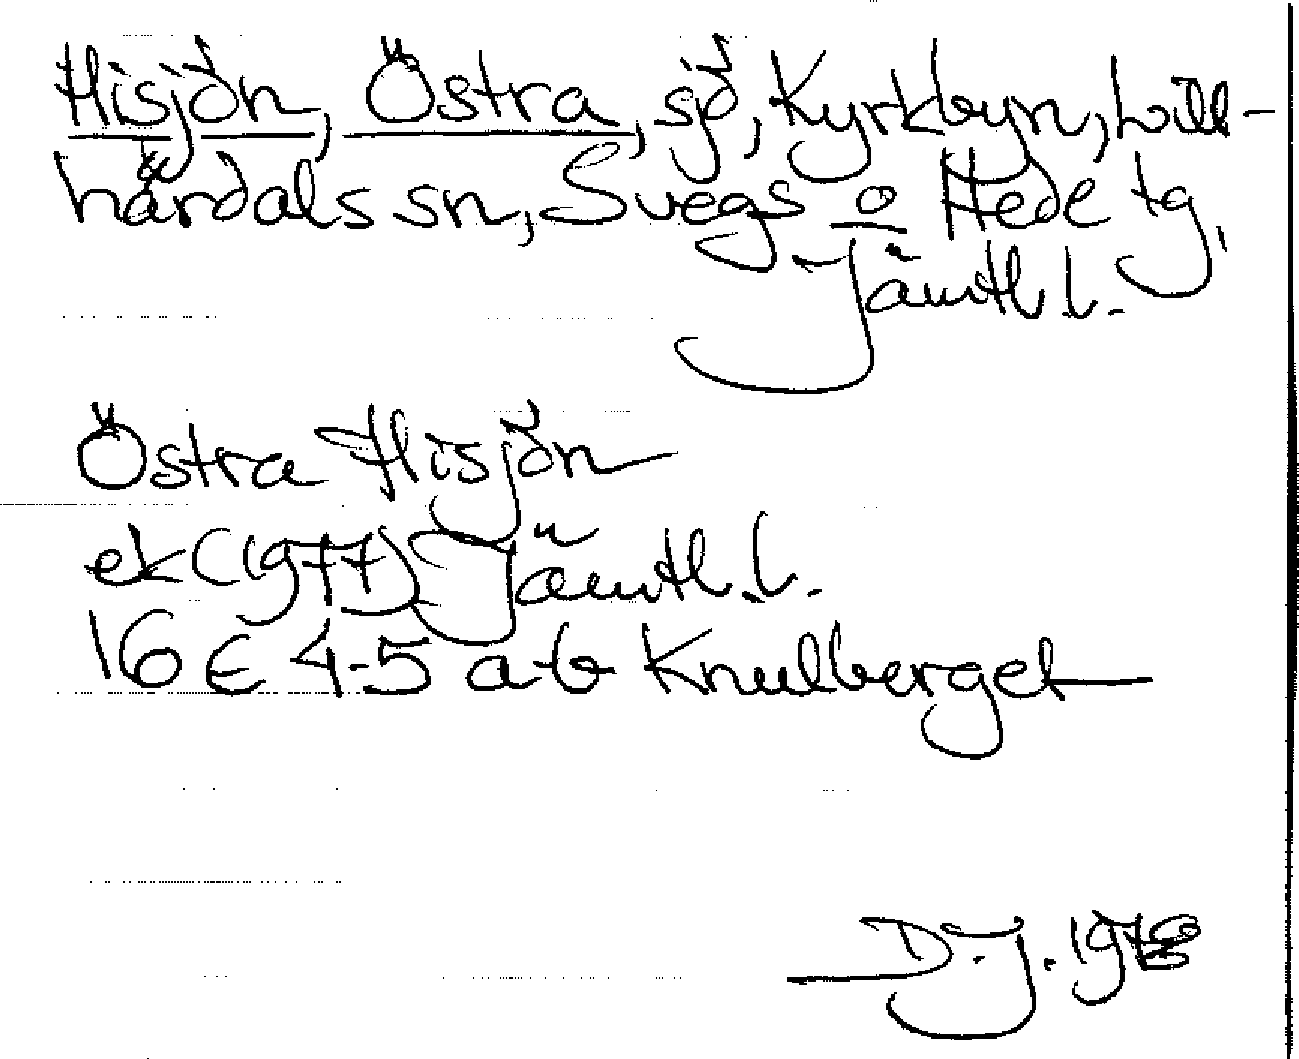 Hisjön, Östra, sjö, Kyrkbyn, Lill-
härdals sn, Svegs o Hede tg,
Jämtl l.
Östra Hisjön
ek (1977) Jämtl. l.
16 E 4-5 a-b Knulberget
D.J. 1978